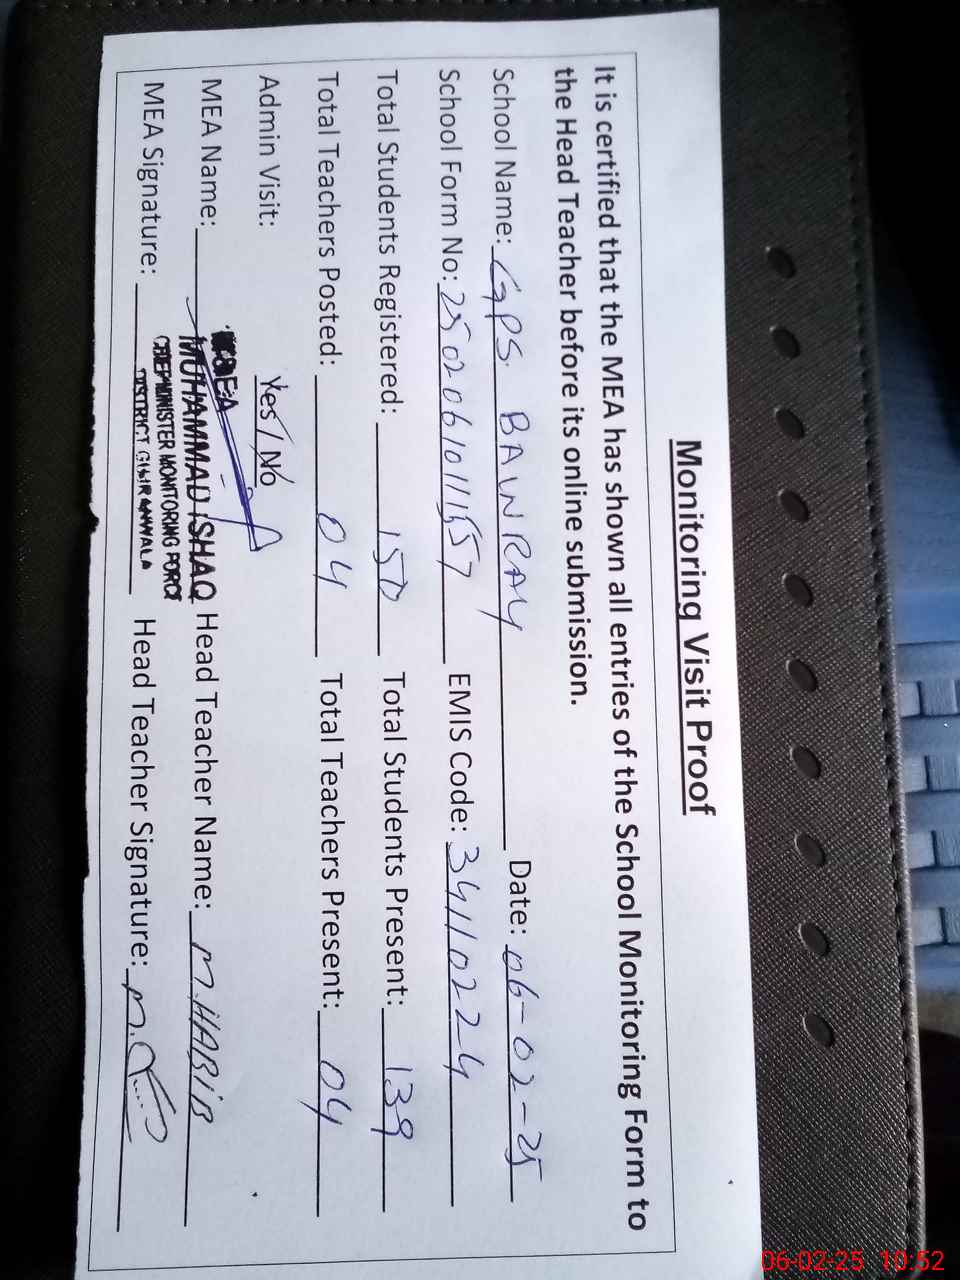 Monitoring Visit Proof
It is certified that the MEA has shown all entries of the School Monitoring Form to
the Head Teacher before its online submission.
School Name: GPS BAWRAY Date: 06-02-25
School Form No: EMIS Code: 34110224
Total Students Registered: 150 Total Students Present: 139
Total Teachers Posted: 04 Total Teachers Present: 04
Admin Visit: Yes / No
MEA
MEA Name: MUHAMMAD ISHAQ Head Teacher Name: M. HABIB
CHIEF MINISTER MONITORING FORCE
MEA Signature: DISTRICT GUJRANWALA Head Teacher Signature:
06-02-25 10:52